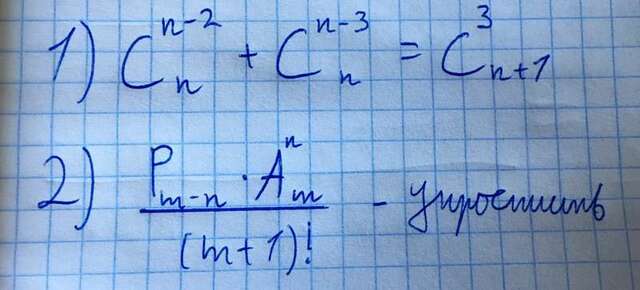 1) C_n^{n-2} + C_n^{n-3} = C_{n+1}^3
2) \frac{P_{m-n} \cdot A_m^n}{(m+1)!} - упростить